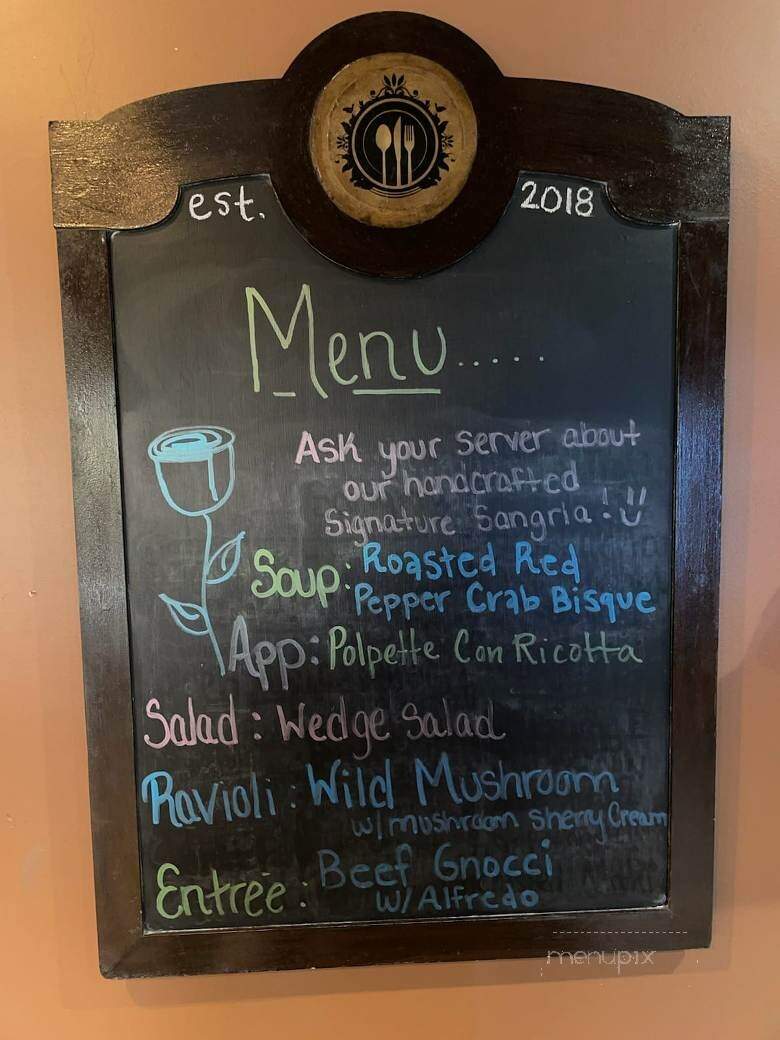 est. 2018
Menu.....
Ask your server about
our handcrafted
Signature Sangria! :)
Soup: Roasted Red
Pepper Crab Bisque
App: Polpette Con Ricotta
Salad: Wedge Salad
Ravioli: Wild Mushroom
w/ mushroom sherry Cream
Entrée: Beef Gnocci
w/ Alfredo
menupix